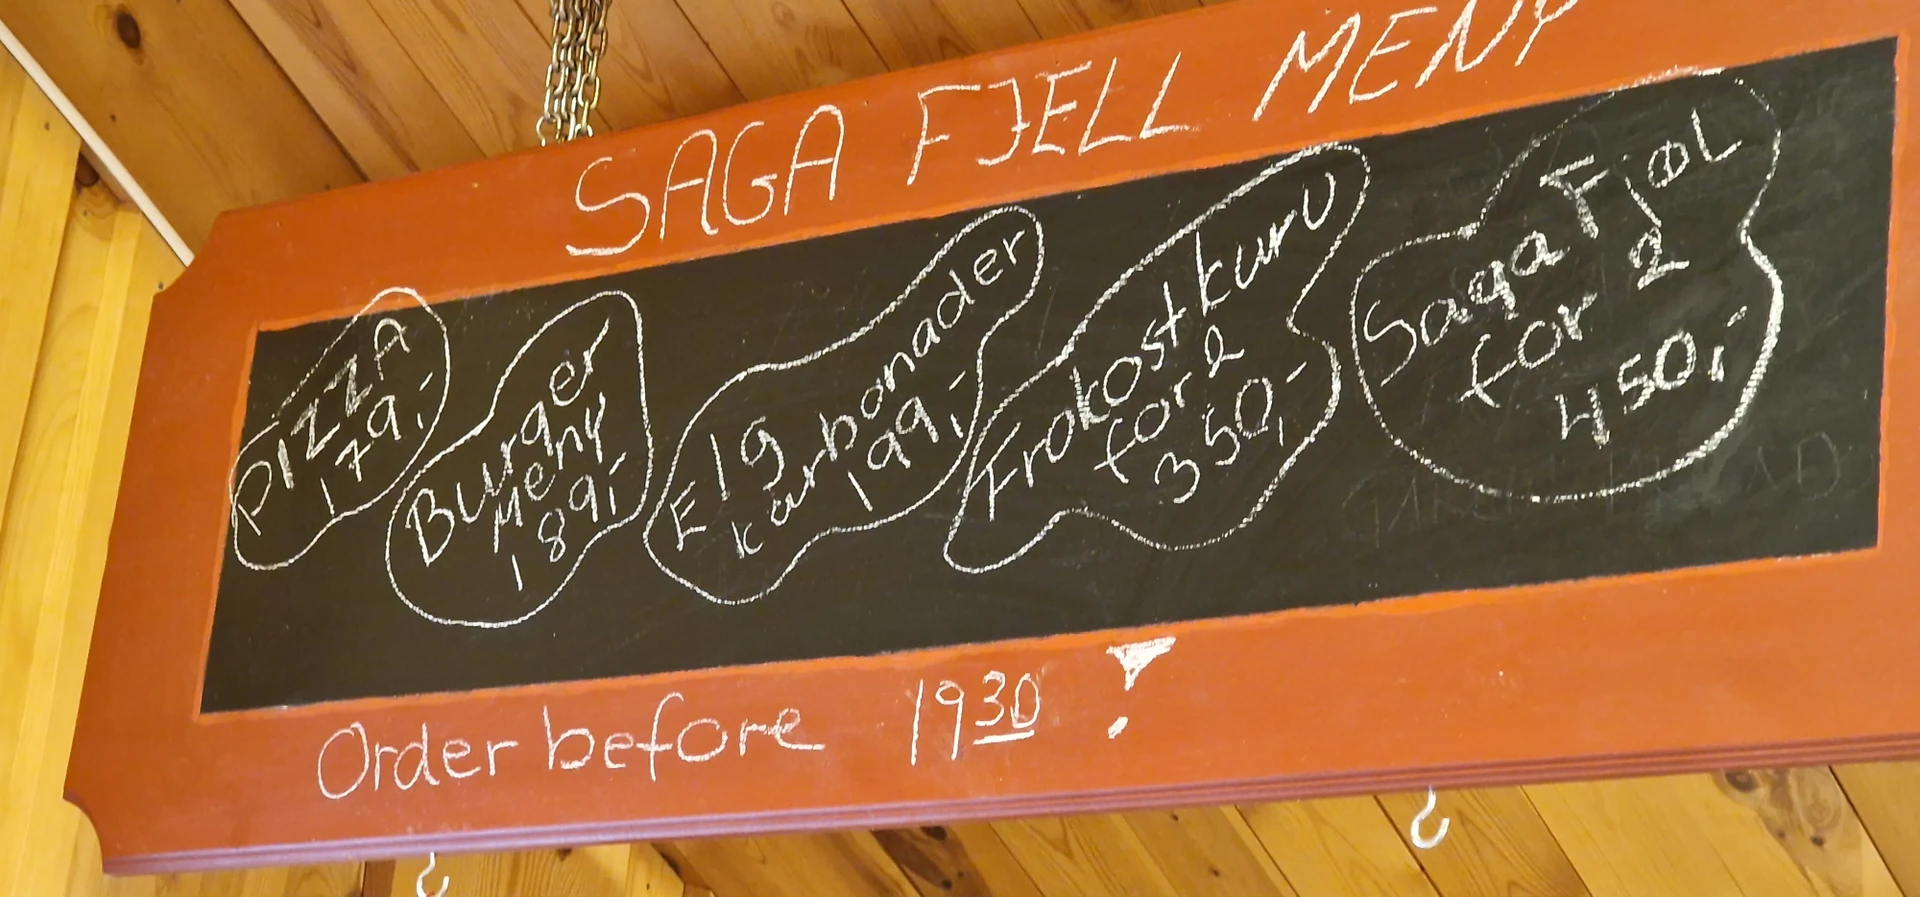 SAGA FJELL MENY
PIZZA
179,-
Burger
Meny
189,-
Elg
karbonader
199,-
Frokostkurv
for 2
350,-
Saga Fjøl
for 2
450,-
Order before 1930 !